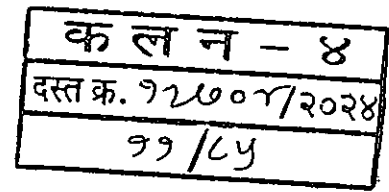 क ल न - ४
दस्त क्र. १२७०४/२०२४
११/८५